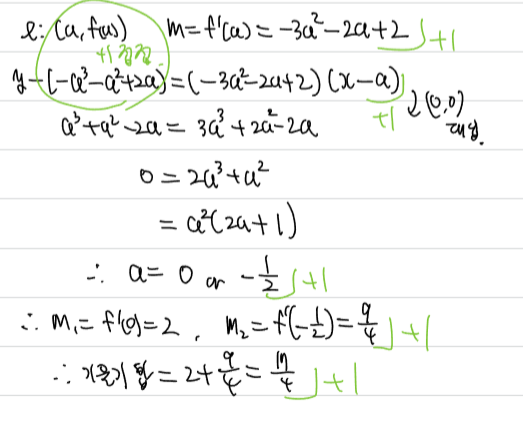 l: (a, f(a)) m=f'(a)=-3a²-2a+2 +1
+1 점
y-(-a³-a²+2a)=(-3a²-2a+2)(x-a) +1
a³+a²-2a=3a³+2a²-2a (0,0) 대입.
0=2a³+a²
=a²(2a+1)
∴ a=0 or -1/2 +1
∴ m₁=f'(0)=2, m₂=f'(-1/2)=9/4 +1
∴ 기울기 합=2+9/4=17/4 +1